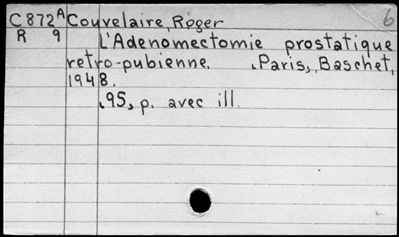 C872A Couvelaire, Roger 6
R 9 L'Adenomectomie prostatique
retro-pubienne. Paris, Baschet,
1948.
95, p. avec ill.